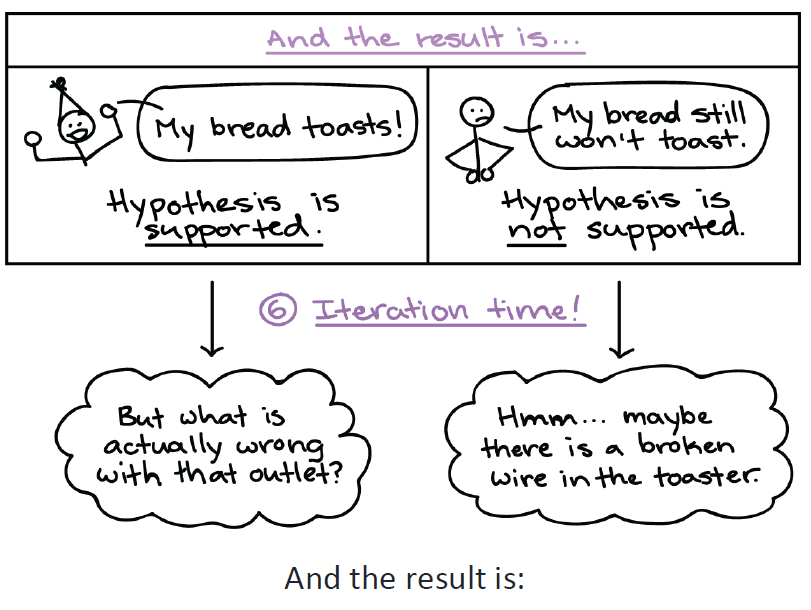 And the result is...
My bread toasts!
Hypothesis is
supported.
My bread still
won't toast.
Hypothesis is
not supported.
⑥ Iteration time!
But what is
actually wrong
with that outlet?
Hmm... maybe
there is a broken
wire in the toaster.
And the result is: